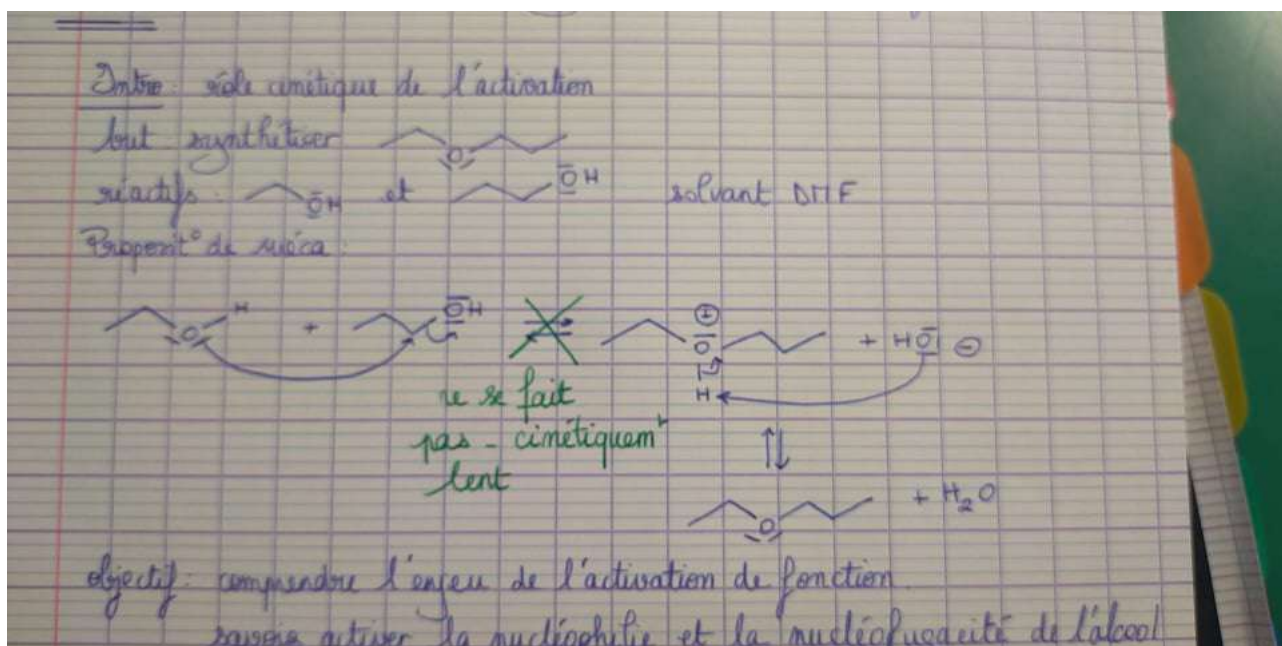 Intro : rôle cinétique de l'activation
but : synthétiser O
réactifs : OH et OH solvant DMF
Proposit° de méca :
H O + OH ⊕ O H + HO ⊖
ne se fait
pas - cinétiquemt
lent
O + H2O
objectif : comprendre l'enjeu de l'activation de fonction.
savoir activer la nucléophilie et la nucléofugacité de l'alcool